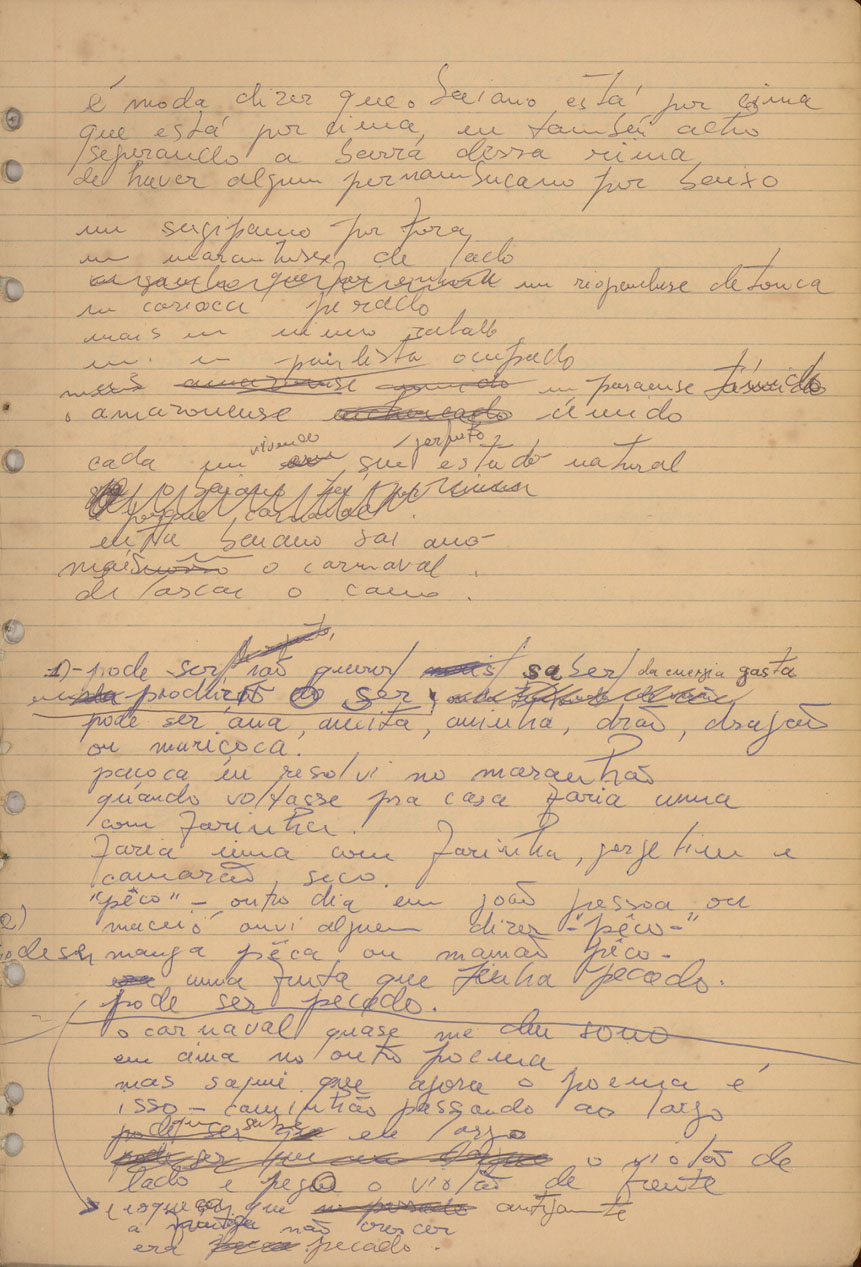 é moda dizer que o baiano está por cima
que está por cima, eu também acho
esperando a barra dessa rima
de haver algum pernambucano por baixo
um sergipano por fora
um maranhense de lado
um riograndense de touca
um carioca pirado
mais um mineiro
um paulista ocupado
um paraense
o amazonense úmido
cada um vivendo seu perfeito estado natural
é porque carnaval
baiano sai ano
mais o carnaval
de lascar o cano.
1)- pode ser não querer saber da energia gasta
produzindo o ser,
pode ser ana, anita, aninha, drão, dragão
ou muriçoca.
paçoca eu resolvi no maranhão
quando voltasse pra casa faria uma
com farinha.
faria uma com farinha, gergelim e
camarão seco.
"pêco" - outro dia em joão pessoa ou
2)
maceió ouvi alguem dizer - "pêco -"
pode ser manga pêca ou mamão pêco -
uma fruta que tinha pecado.
pode ser pecado.
o carnaval quase me deu sono
em cima no outro poema
mas saquei que agora o poema é
isso - caminhão passando ao largo
pode ser que em largo
o violão de
lado e pego o violão de frente
que antigamente
a não crescer
era pecado.